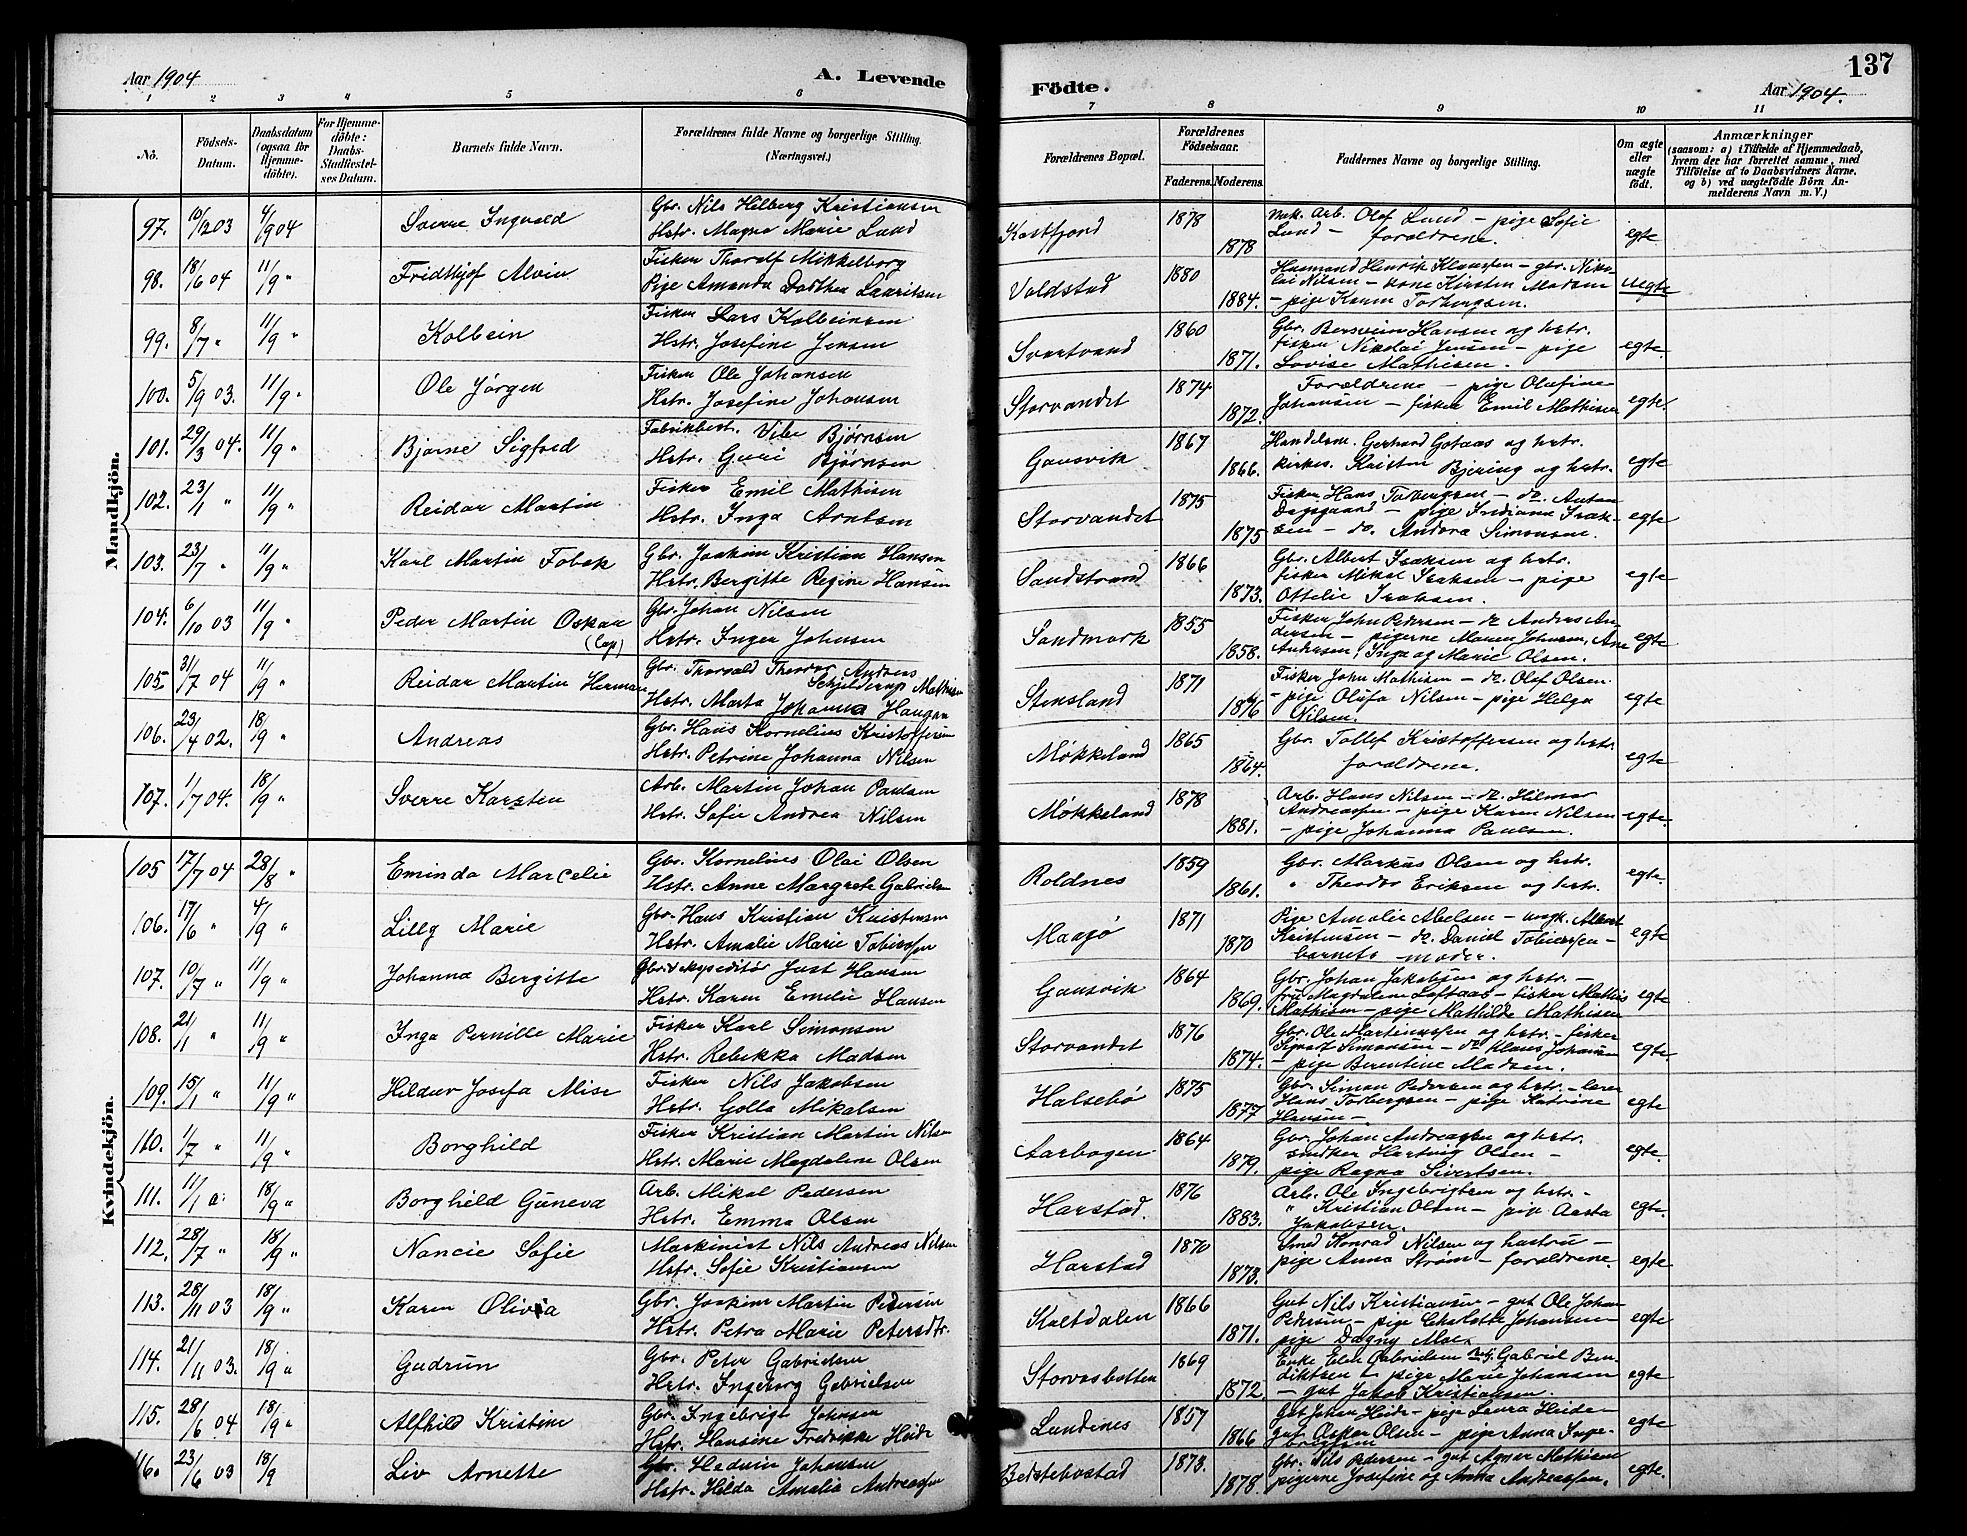 Aar 1904
A. Levende
1 2 3 4 5 6
No.
Födsels-
Datum.
Daabsdatum
(ogsaa for
Hjemme-
döbte).
For Hjemme-
döbte:
Daabs-
Stadfæstel-
ses Datum.
Barnets fulde Navn.
Forældrenes fulde Navne og borgerlige Stilling.
(Næringsvei.)
Mandkjön.
97. 10/12 03 4/9 04 Sverre Ingvald
Gbr. Nils Hilberg Kristiansen
Hstr. Magna Marie Lund
98. 18/6 04 11/9 " Fridthjof Alvin
Fisker Thoralf Mikkelborg
Pige Amanda Dorthea Lauritsen
99. 8/7 " 11/9 " Kolbein
Fisker Lars Kolbeinsen
Hstr. Josefine Jensen
100. 5/9 03. 11/9 " Ole Jørgen
Fisker Ole Johansen
Hstr. Josefine Johansen
101. 29/3 04. 11/9 " Bjarne Sigfred
Fabrikbest. Vibe Bjørnsen
Hstr. Guri Bjørnsen
102. 23/1 " 11/9 " Reidar Martin
Fisker Emil Mathisen
Hstr. Inga Arntsen
103. 23/7 " 11/9 " Karl Martin Tobek
Gbr. Joakim Kristian Hansen
Hstr. Bergitte Regine Hansen
104. 6/10 03 11/9 " Peder Martin Oskar
(Lap)
Gbr. Johan Nilsen
Hstr. Inger Johnsen
105 31/7 04 11/9 " Reidar Martin Herman
Gbr. Thorvald Theodor Andreas
Schjelderup Mathisen
Hstr. Marta Johanna Haugan
106. 23/4 02. 18/9 " Andreas
Gbr. Hans Kornelius Kristoffersen
Hstr. Petrine Johanna Nilsen
107. 1/7 04. 18/9 " Sverre Karsten
Arb. Martin Johan Paulsen
Hstr. Sofie Andrea Nilsen
Kvindekjön.
105 17/7 04 28/8 " Eminda Marcelie
Gbr. Kornelius Olai Olsen
Hstr. Anne Margrete Gabrielsen
106. 17/6 " 4/9 " Lilly Marie
Gbr. Hans Kristian Kristensen
Hstr. Amalie Marie Tobiassen
107. 10/7 " 11/9 " Johanna Bergitte
Gbr. & ekspeditør Just Hansen
Hstr. Karen Emelie Hansen
108. 21/1 " 11/9 " Inga Pernille Marie
Fisker Karl Simonsen
Hstr. Rebekka Madsen
109. 15/1 " 11/9 " Hildur Josefa Mise
Fisker Nils Jakobsen
Hstr. Golla Mikalsen
110. 1/7 " 11/9 " Borghild
Fisker Kristian Martin Nilsen
Hstr. Marie Magdalene Olsen
111. 11/1 18/9 " Borghild Guneva
Arb. Mikal Pedersen
Hstr. Emma Olsen
112. 28/7 " 18/9 " Nancie Sofie
Maskinist Nils Andreas Nilsen
Hstr. Sofie Kristiansen
113. 28/11 03 18/9 " Karen Olivia
Gbr. Joakim Martin Pedersen
Hstr. Petra Marie Petersdtr.
114. 21/11 03. 18/9 " Gudrun
Gbr. Peter Gabrielsen
Hstr. Ingeborg Gabrielsen
115. 28/6 04 18/9 " Alfhild Kristine
Gbr. Ingebrigt Johnsen
Hstr. Hansine Fredrikke Heide
116. 23/6 03 18/9 Liv Arnette
Gbr. Hedvin Johansen
Hstr. Hilda Amalia Andreassen
137
Födte.
Aar 1904.
7 8 9 10 11
Forældrenes Bopæl.
Forældrenes
Födselsaar.
Faderens. Moderens.
Faddernes Navne og borgerlige Stilling.
Om ægte
eller
uægte
födt.
Anmærkninger
(saasom: a) i Tilfælde af Hjemmedaab,
hvem der har forrettet samme, med
Tilföielse af to Daabsvidners Navne,
og b) ved uægtefödte Börn An-
melderens Navn m. V.)
Kastfjord 1878 1878
Mek. Arb. Olof Lund – pige Sofie
Lund – forældrene.
egte
Voldstad 1880 1884.
Husmand Henrik Klaussen – gbr. Niko-
lai Nilsen – kone Kirsten Madsen
– pige Karen Torbergsen.
uegte
Svartvand 1860 1871.
Gbr. Bersvein Hansen og hstr.
fisker Nikolai Jensen – pige
Lovise Mathisen.
egte.
Storvandet 1874 1872.
Forældrene – pige Olafine
Johansen – fisker Emil Mathisen
egte.
Gausvik 1867 1866.
Handelsm. Gerhard Gotaas og hstr.
kirkes. Kristen Bjering og hstr.
egte
Storvandet 1875 1875
Fisker Hans Torbergsen – do. Anton
Dagsgaard – pige Indiana Isak-
sen – do. Andora Simonsen.
egte
Sandstrand 1866 1873.
Gbr. Albert Isaksen og hstr.
fisker Mikal Isaksen – pige
Ottelie Isaksen.
egte
Sandmark 1855 1858.
Fisker John Pedersen – do Andreas An-
dersen – pigerne Maren Johnsen, Ane
Andersen, Inga og Marie Olsen.
egte
Stensland 1871 1876
Fisker John Mathisen – do. Olaf Olsen
– pige Olufa Nilsen – pige Helga
Nilsen.
egte
Møkkeland 1865 1864.
Gbr. Tollef Kristoffersen og hstr
forældrene.
egte
Møkkeland 1878 1881.
Arb. Hans Nilsen – do. Hilmar
Andreassen – pige Karen Nilsen
– pige Johanna Paulsen.
egte.
Roldnes 1859 1861.
Gbr. Markus Olsen og hstr.
" Theodor Eriksen og hstr.
egte.
Maasø 1871 1870
Pige Amalie Abelsen – ungk. Albert
Kristensen – do. Daniel Tobiassen –
barnets moder.
egte
Gausvik 1864 1869.
Gbr. Johan Jakobsen og hstr. –
fru Magdalene Loftaas – fisker Mathis
Mathisen – pige Mathilde Mathisen
egte
Storvandet 1876 1874.
Gbr. Ole Martinussen og hstr. – fisker
Sivert Simonsen – do Klaus Johansen
– pige Berentine Madsen.
egte
Halsebø 1875 1877
Gbr. Simon Pedersen og hstr. – lærer
Hans Torbergsen – pige Katrine
Hansen –
egte
Aarbogen 1864 1879.
Gbr. Johan Andreassen og hstr.
snedker Hartvig Olsen –
pige Ragna Sivertsen.
egte.
Harstad. 1876 1883.
Arb. Ole Ingebrigtsen og hstr. –
" Kristian Olsen – pige Aasta
Jakobsen.
egte.
Harstad 1870 1873.
Smed Konrad Nilsen og hustru –
pige Anna Strøm – forældrene.
egte
Kaltdalen 1866 1871.
Gut Nils Kristiansen – gut Ole Johan
Pedersen – pige Charlotte Johansen –
pige Dagny Moe.
egte
Storvasbotten 1869 1872
Enke Elen Gabrielsen Gabriel Ben-
diktsen – pige Marie Johansen
– gut Jakob Kristiansen.
egte
Lundenes 1857 1866
Gut Johan Heide – pige Laura Heide –
gut Oskar Olsen – pige Anna Inge-
brigtsen
egte
Bestebostad 1873. 1878.
Gbr. Nils Pedersen – gut Agner Mathisen
pigerne Josefine og Anna Andreassen.
egte.